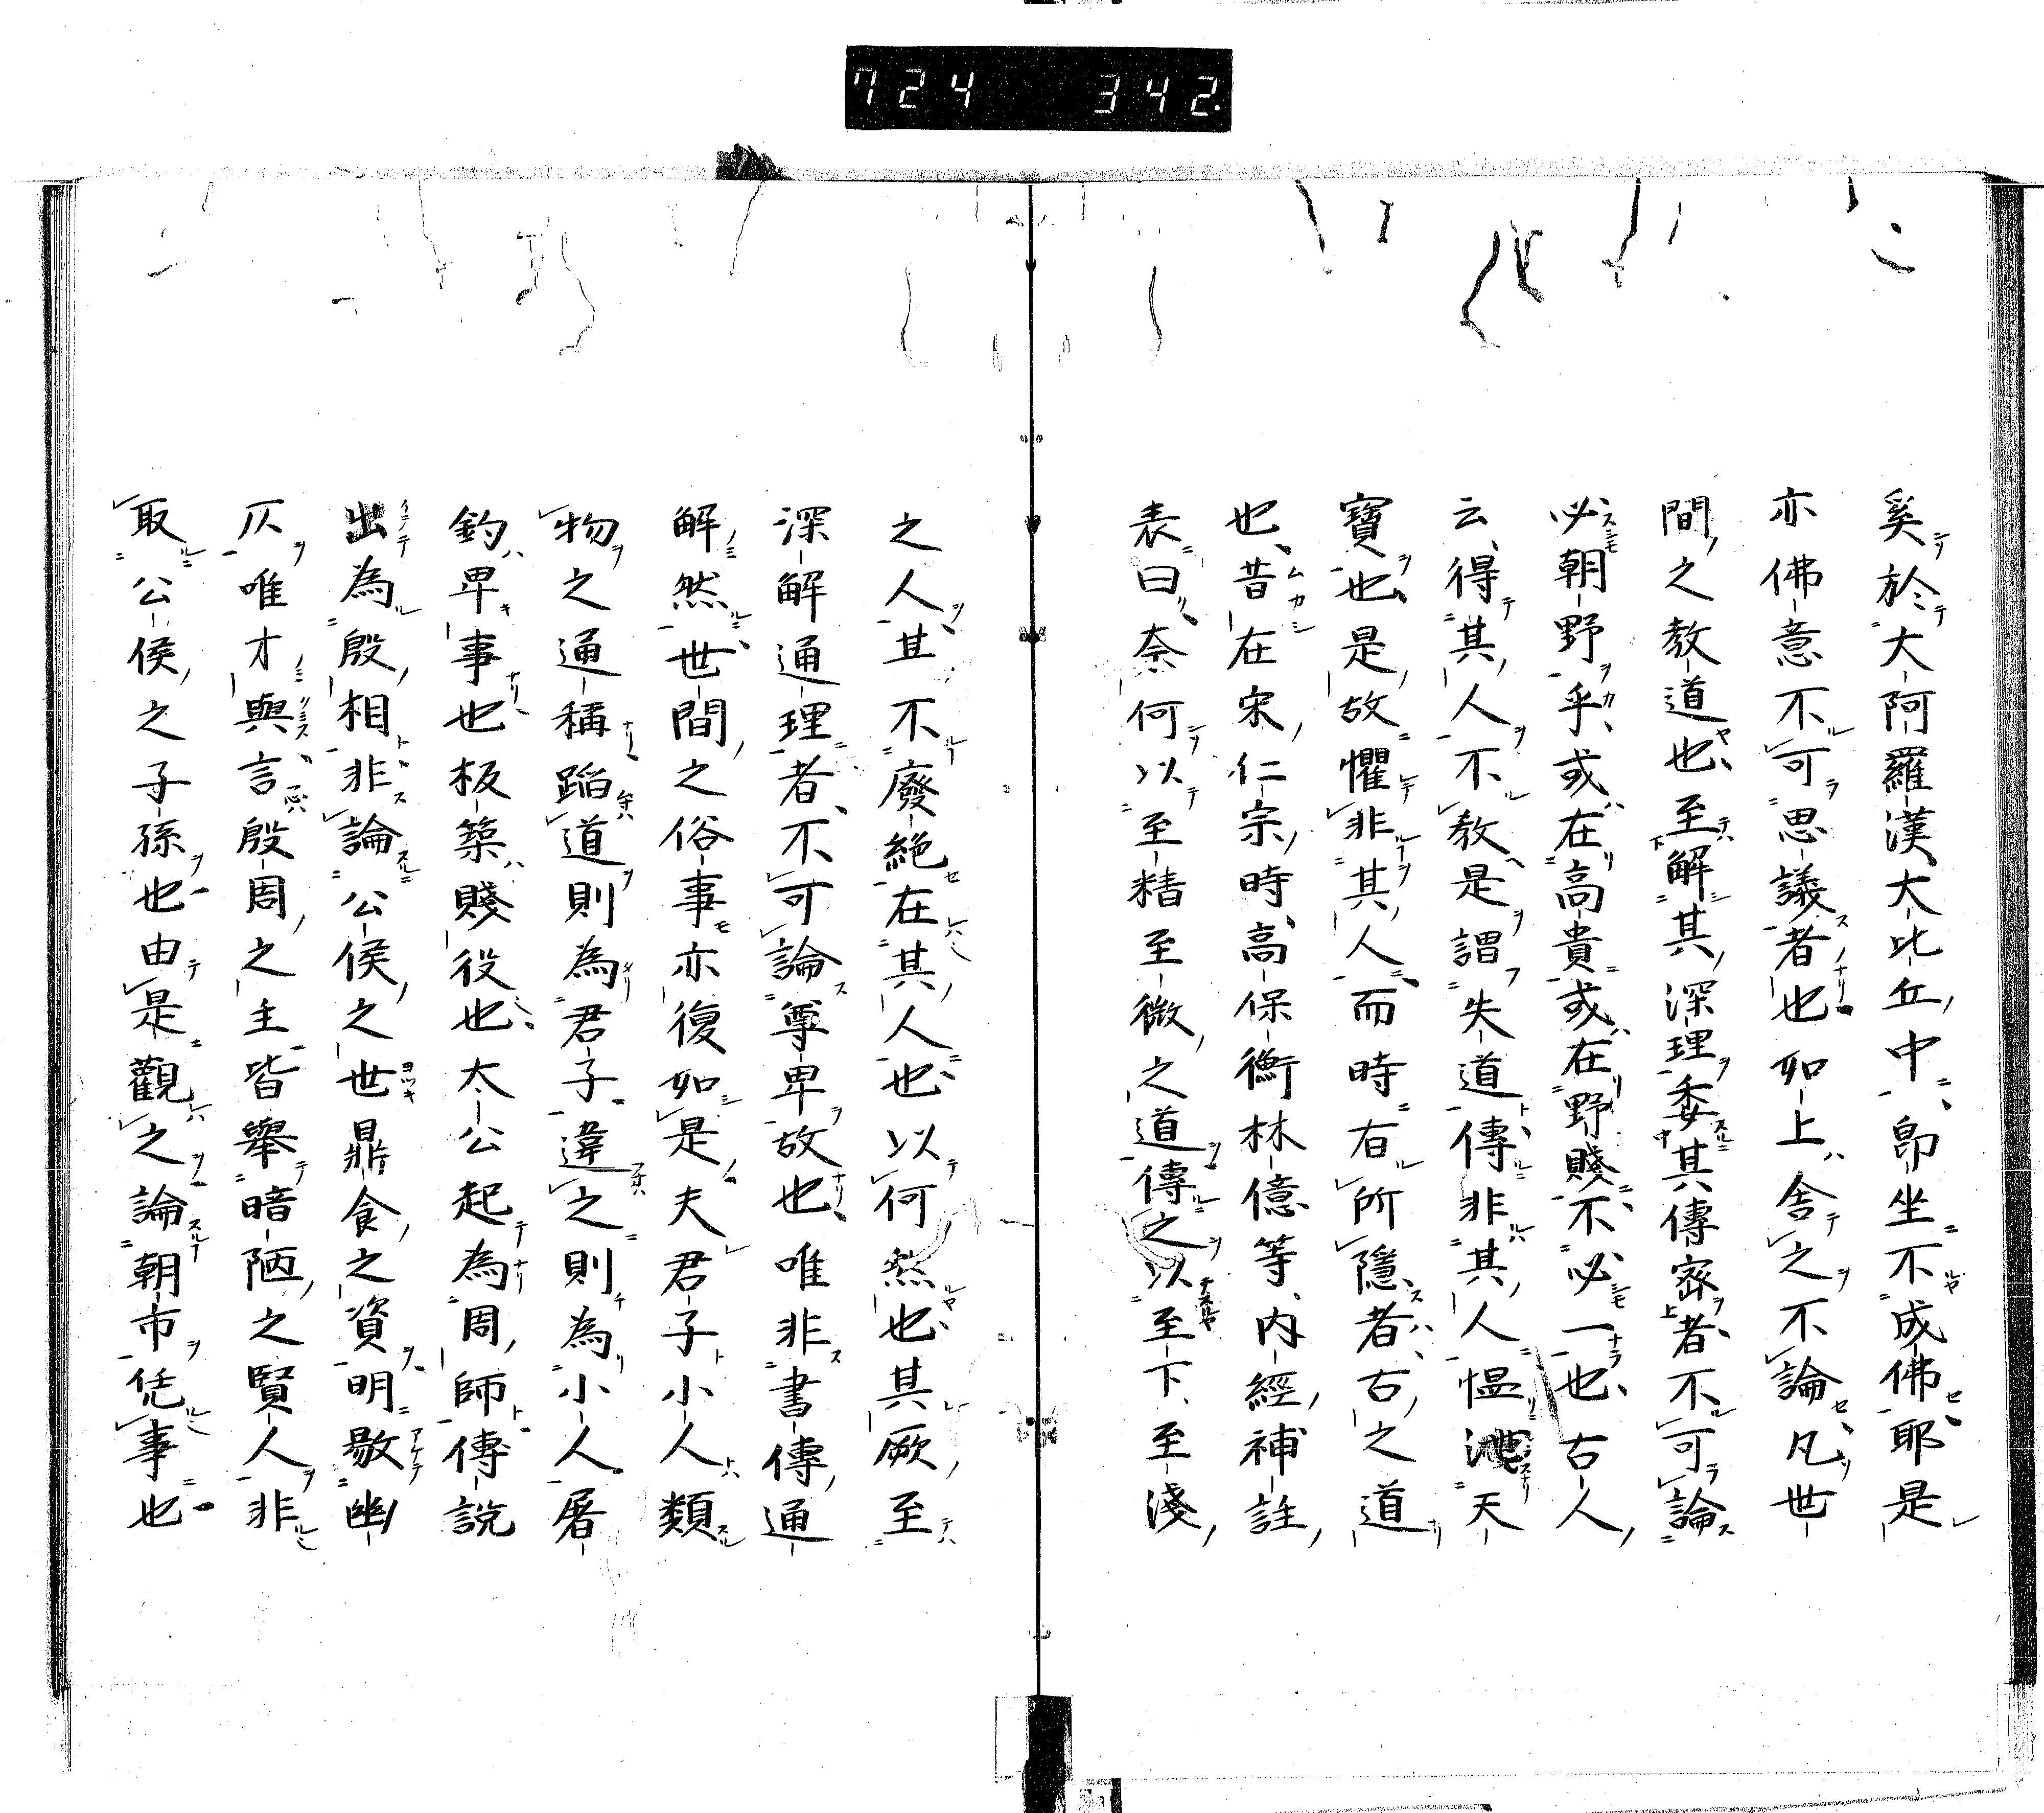 724 342.
奚於大阿羅漢大比丘中即坐不成佛耶是
亦佛意不可思議者也如上舎之不論凡世
間之教道也至解其深理委其傳密者不可論
必朝野乎或在高貴或在野賤不必一也古人
云得其人不教是謂失道傳非其人慍泄天
寶也是故懼非其人而時有所隱者古之道
也昔在宋仁宗時高保衡林億等内經補註
表曰奈何以至精至微之道傳之以至下至淺
之人其不廢絶在其人也以何然也其厥至
深解通理者不可論尊卑故也唯非書傳通
解然世間之俗事亦復如是夫君子小人類
物之通稱蹈道則為君子違之則為小人屠
釣卑事也板築賤役也太公起為周師傳説
出為殷相非論公侯之世鼎食之資明敭幽
仄唯才與言殷周之主皆舉暗陋之賢人非
取公侯之子孫也由是觀之論朝市凭事也